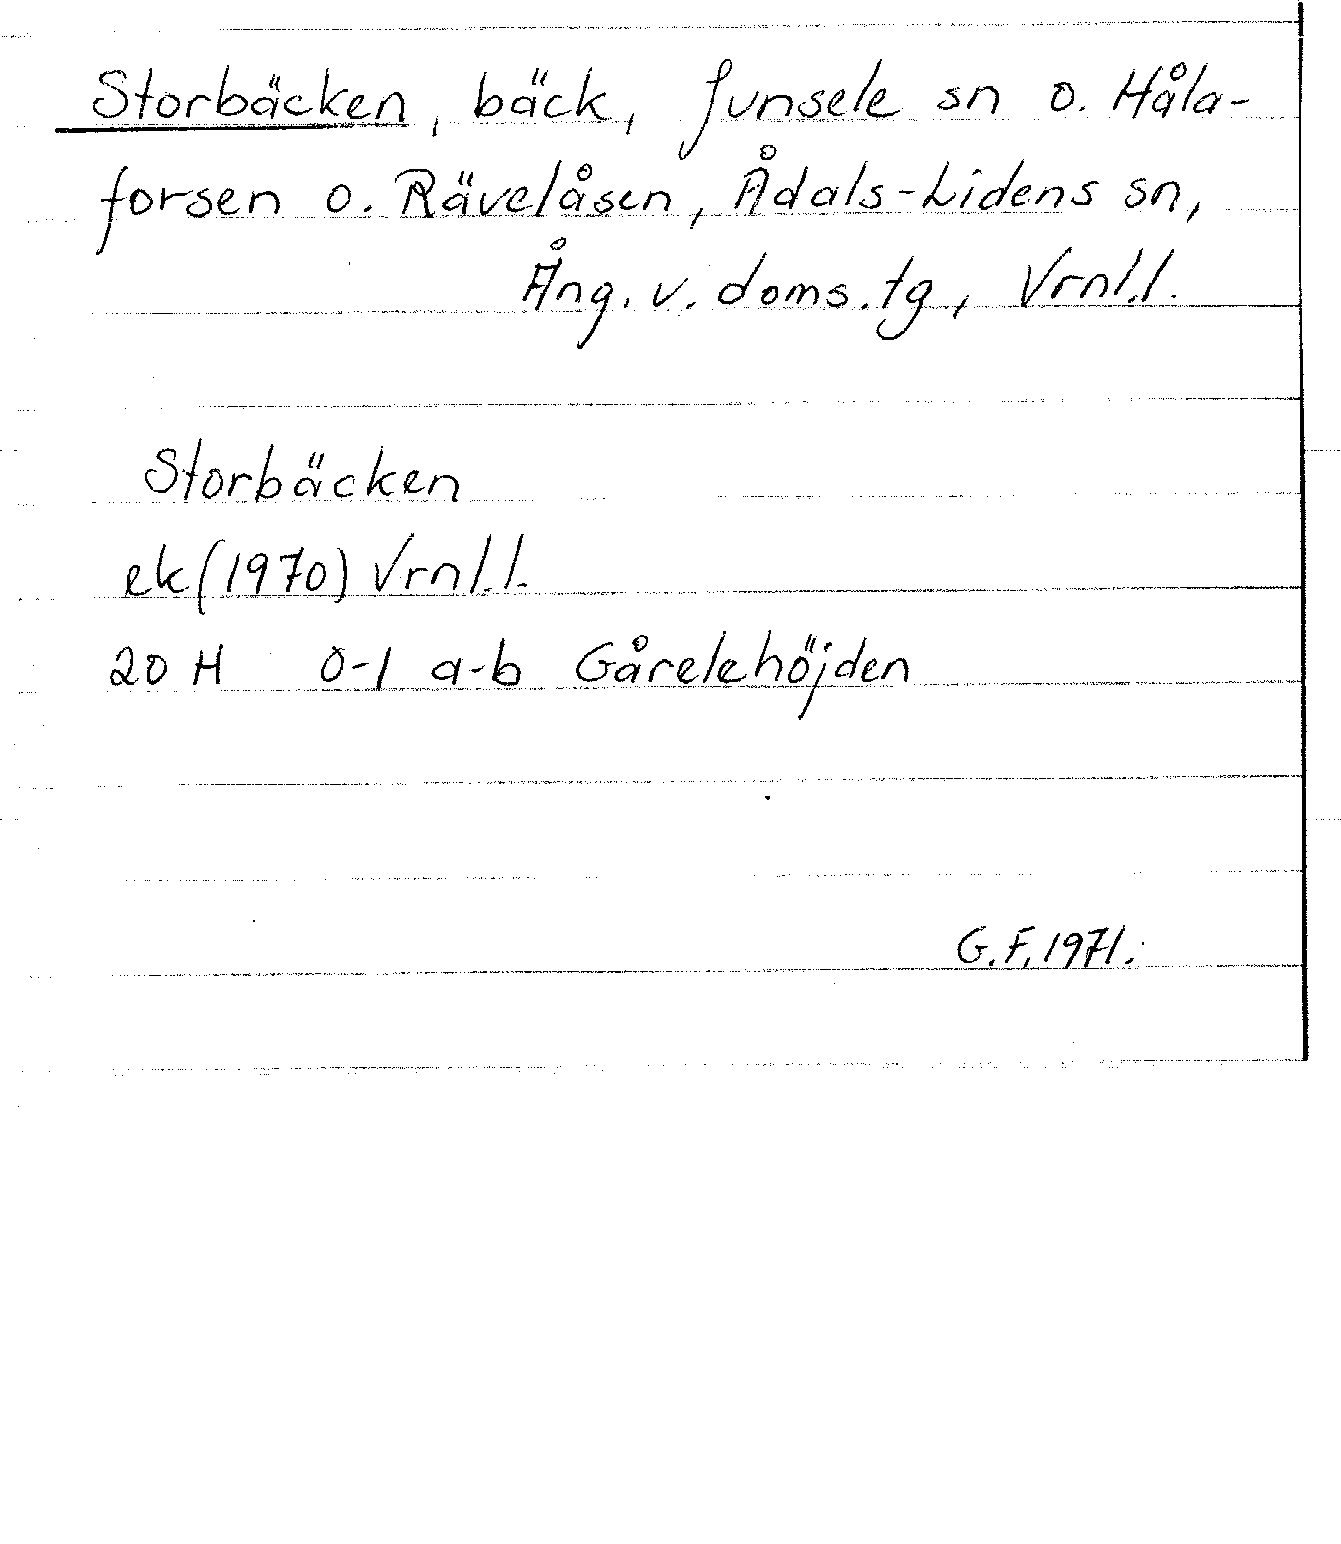 Storbäcken, bäck, Junsele sn o. Håla-
forsen o. Rävelåsen, Ådals-Lidens sn,
Ång. v. doms. tg, Vrnl.l.
Storbäcken
ek (1970) Vrnl.l.
20 H 0-1 a-b Gårelehöjden
G.F. 1971.